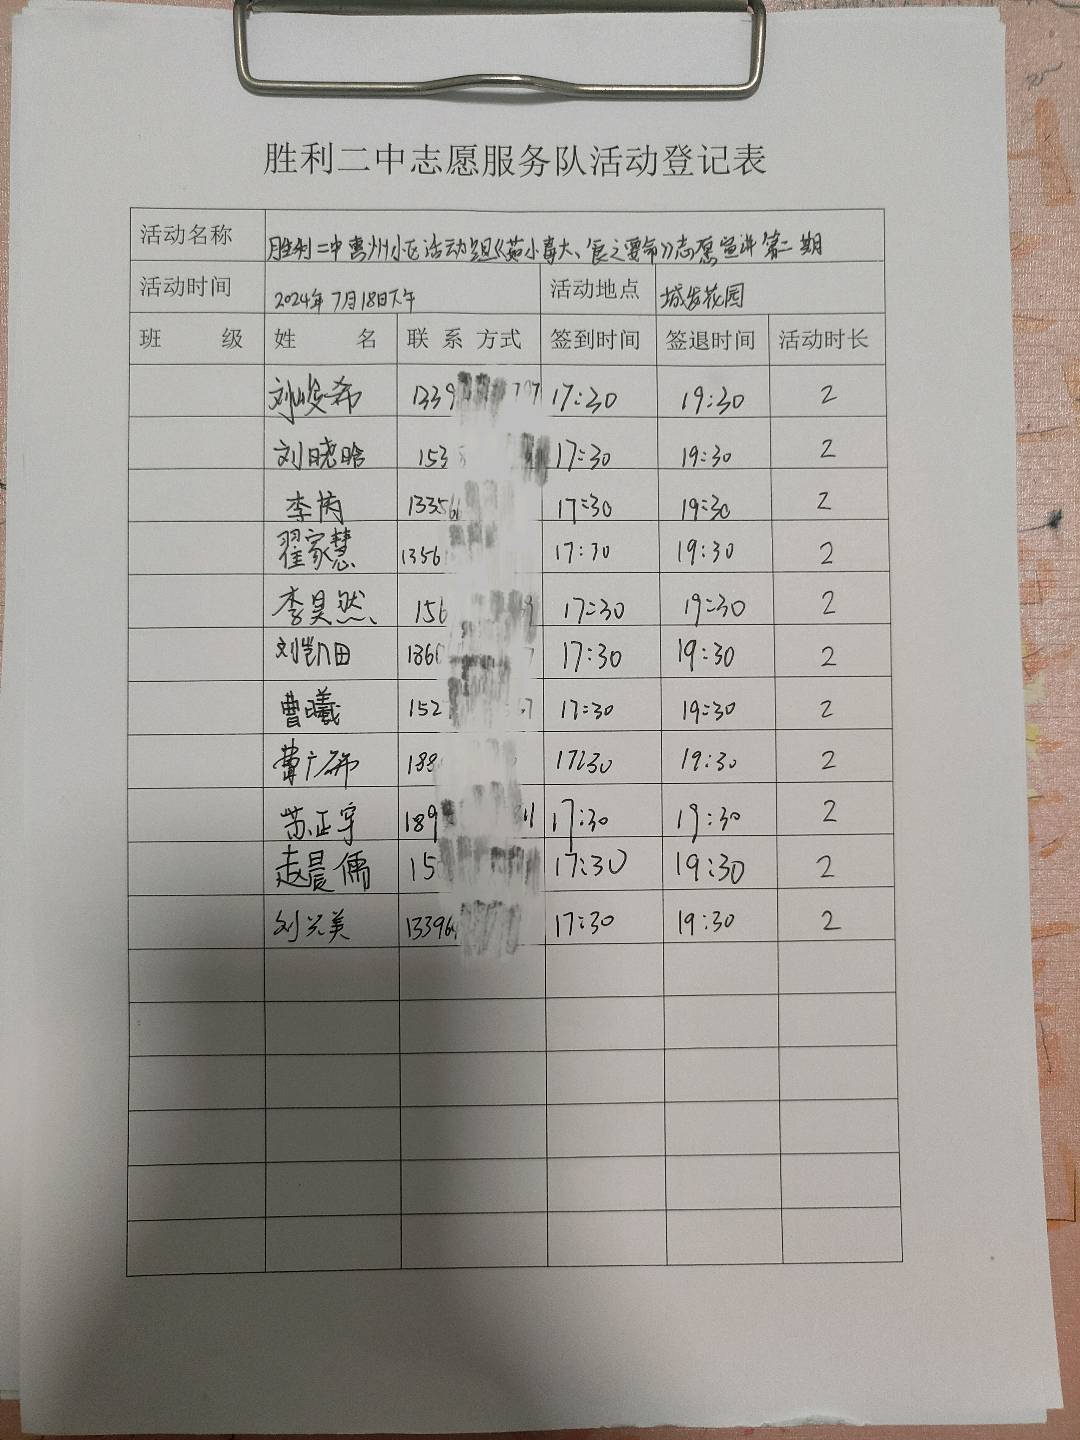 胜利二中志愿服务队活动登记表
活动名称 胜利二中惠州小区活动组《菇小毒大、食之要命》志愿宣讲第二期
活动时间 2024年7月18日下午 活动地点 城发花园
班 级 姓 名 联 系 方式 签到时间 签退时间 活动时长
刘峻希 1339 17:30 19:30 2
刘晓晗 153 17:30 19:30 2
李芮 13356 17:30 19:30 2
翟家慧 1356 17:30 19:30 2
李昊然 156 17:30 19:30 2
刘凯田 186 17:30 19:30 2
曹曦 152 17:30 19:30 2
17:30 19:30 2
苏正宇 189 17:30 19:30 2
赵晨儒 15 17:30 19:30 2
刘兴美 1339 17:30 19:30 2